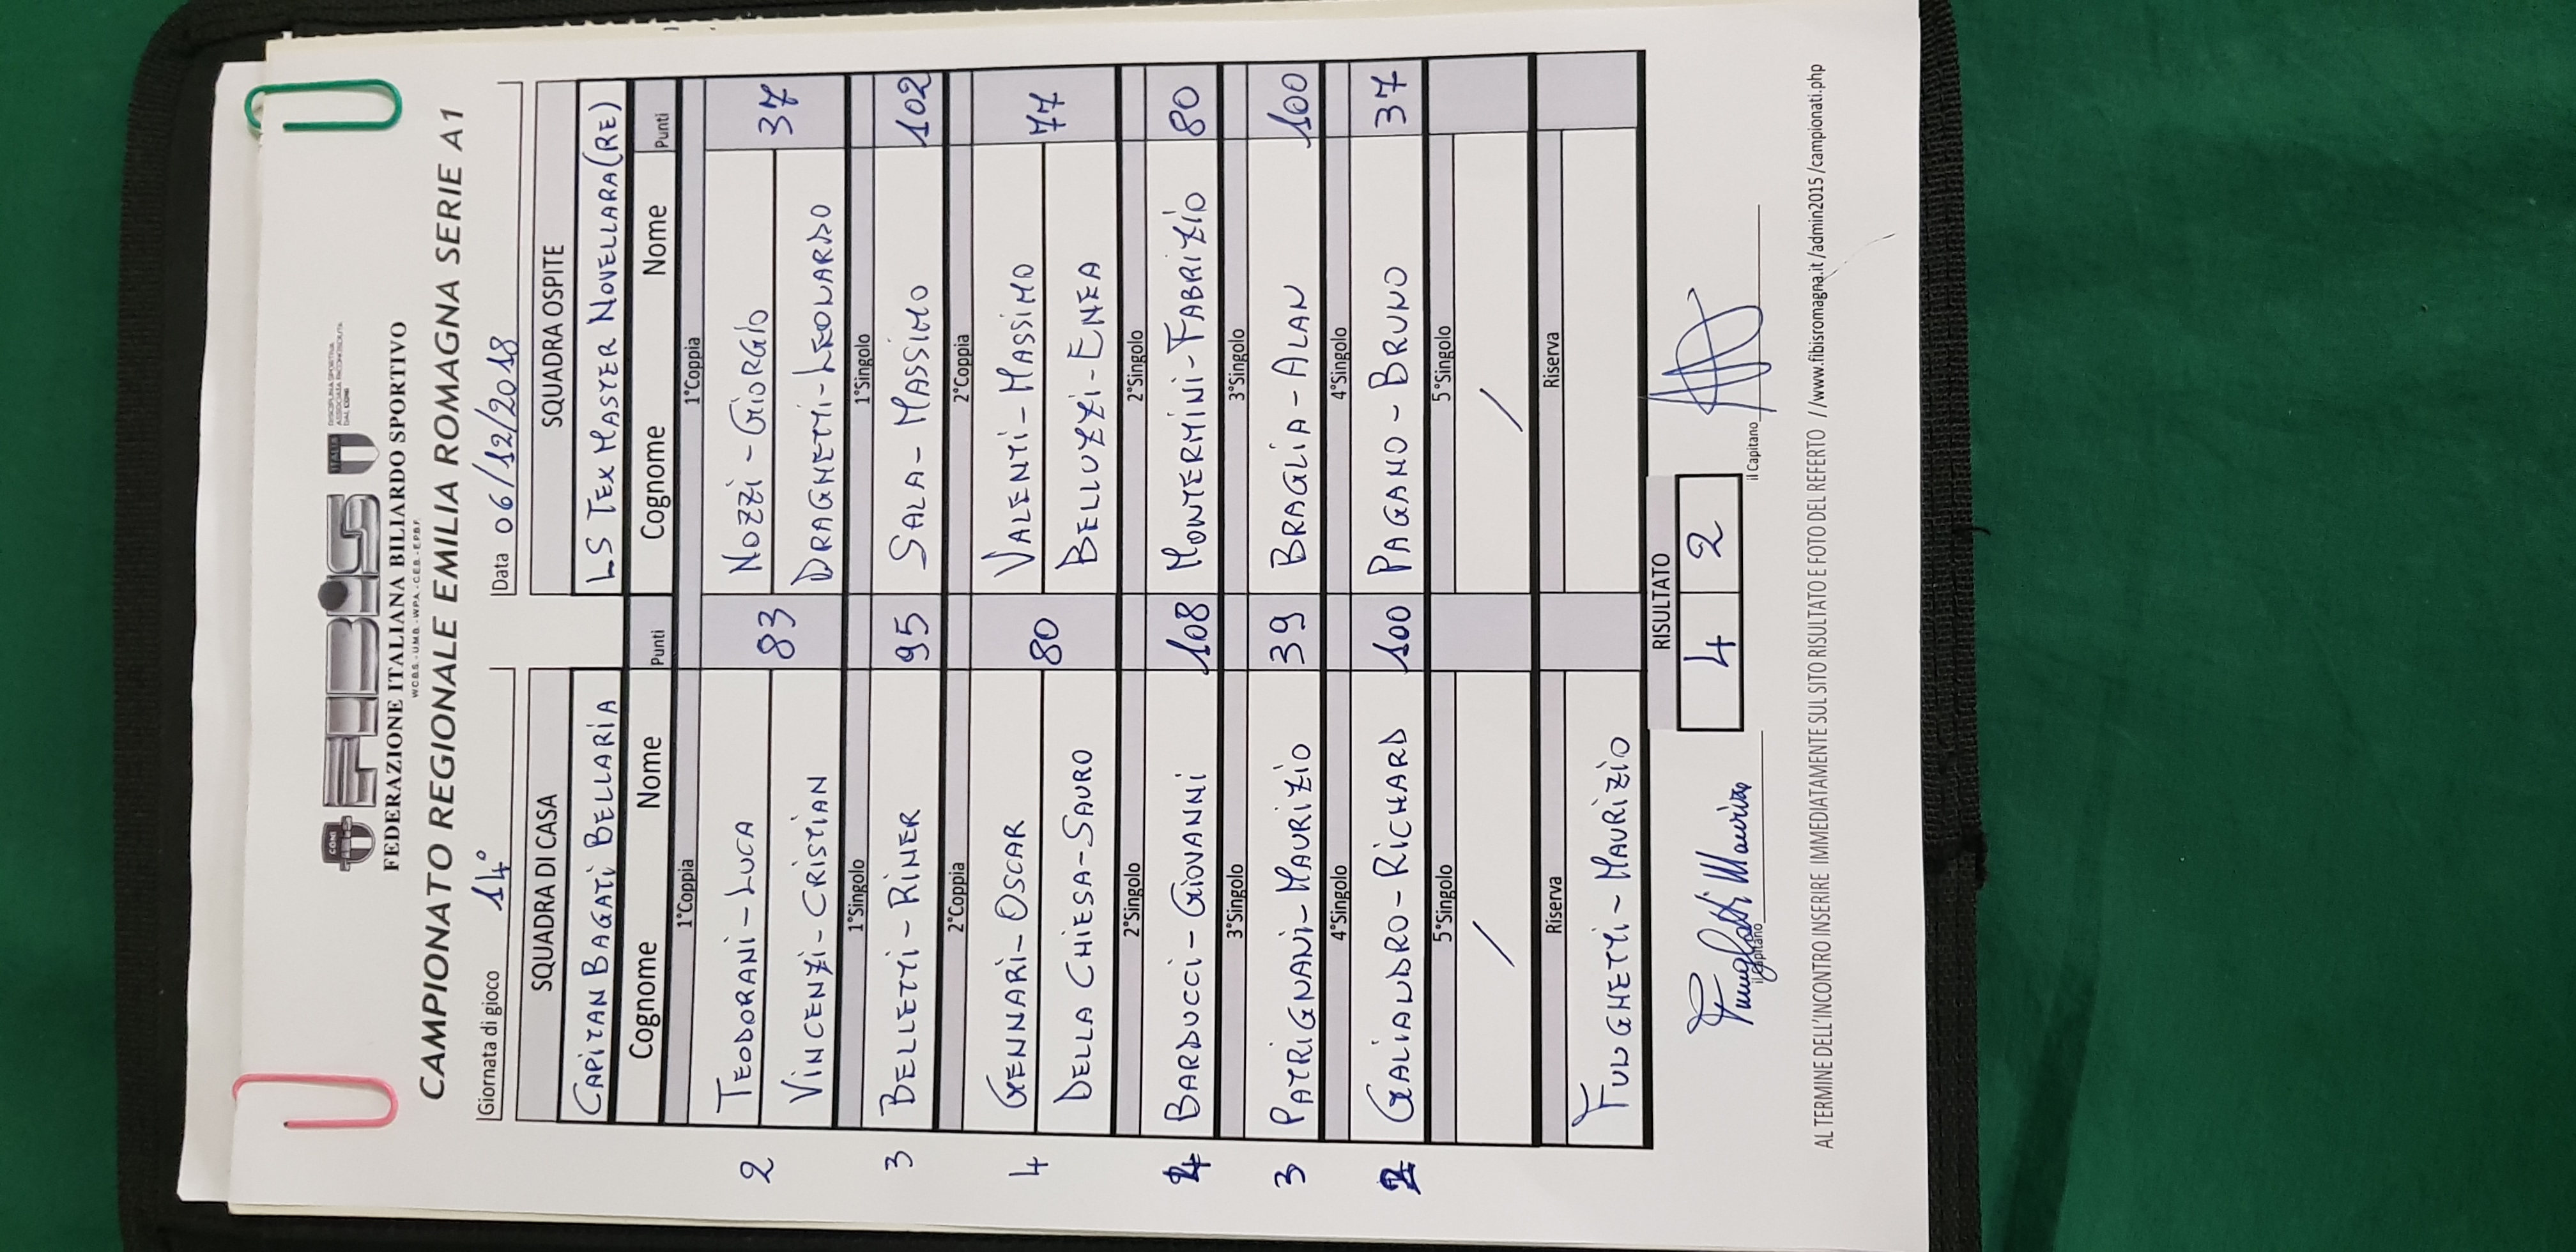 CONI
FIBiS
ITALIA
DISCIPLINA SPORTIVA
ASSOCIATA RICONOSCIUTA
DAL CONI
FEDERAZIONE ITALIANA BILIARDO SPORTIVO
W.C.B.S. - U.M.B. - W.P.A. - C.E.B. - E.P.B.F.
CAMPIONATO REGIONALE EMILIA ROMAGNA SERIE A1
Giornata di gioco 14° Data 06/12/2018
SQUADRA DI CASA SQUADRA OSPITE
CAPITAN BAGATI BELLARIA LS TEX MASTER NOVELLARA (RE)
Cognome Nome Punti Cognome Nome Punti
1°Coppia 1°Coppia
2 TEODORANI - LUCA 83 NOZZI - GIORGIO 37
VINCENZI - CRISTIAN DRAGHETTI - LEONARDO
1°Singolo 1°Singolo
3 BELLETTI - RINER 95 SALA - MASSIMO 102
2°Coppia 2°Coppia
4 GENNARI - OSCAR 80 VALENTI - MASSIMO 77
DELLA CHIESA - SAURO BELLUZZI - ENEA
2°Singolo 2°Singolo
4 BARDUCCI - GIOVANNI 108 MONTERMINI - FABRIZIO 80
3°Singolo 3°Singolo
3 PATRIGNANI - MAURIZIO 39 BRAGLIA - ALAN 100
4°Singolo 4°Singolo
2 GALIANDRO - RICHARD 100 PAGANO - BRUNO 37
5°Singolo 5°Singolo
/ /
Riserva Riserva
FULGHETTI - MAURIZIO
RISULTATO
4 2
il Capitano il Capitano
AL TERMINE DELL'INCONTRO INSERIRE IMMEDIATAMENTE SUL SITO RISULTATO E FOTO DEL REFERTO //www.fibisromagna.it/admin2015/campionati.php